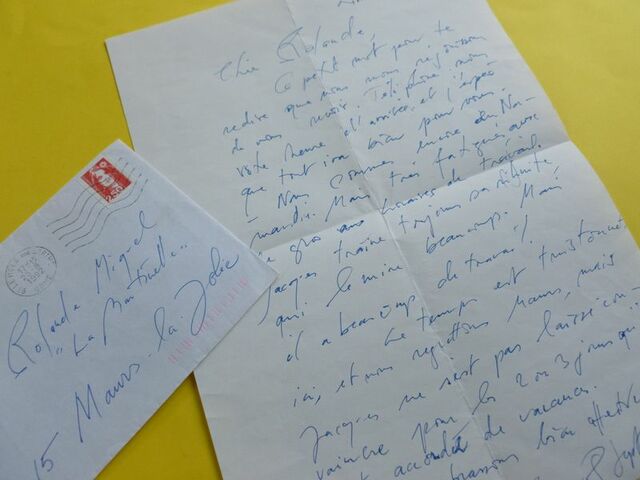 Chère Rolande,
Ce petit mot pour te
redire que nous nous réjouissons
de vous revoir. Téléphone nous
votre heure d'arrivée et j'espère
que tout ira bien pour vous.
Nous sommes encore en Nor-
mandie. Mais très fatigués, avec
de gros horaires de travail.
Jacques traîne toujours sa
qui le mine beaucoup. Mais
il a beaucoup de travail!
Le temps est tristounet
ici, et nous regrettons Maurs, mais
Jacques ne s'est pas laissé con-
vaincre pour les 2 ou 3 jours qu'
accordés de vacances.
bien affectu
2,50
Rolande Miquel
"La Martinelle"
15 Maurs-la-Jolie